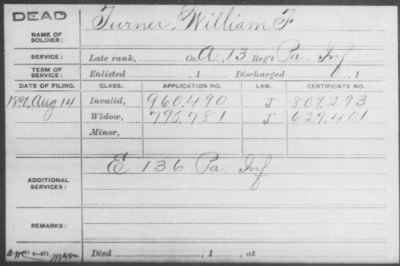 DEAD
NAME OF SOLDIER: Turner, William F
SERVICE: Late rank, Co. A, 13 Reg't Pa. Inf
TERM OF SERVICE: Enlisted , 1 Discharged , 1
DATE OF FILING. CLASS. APPLICATION NO. LAW. CERTIFICATE NO.
1891, Aug 14 Invalid, 960,490 J 809,293
Widow, 795,781 J 627,401
Minor,
E 136 Pa Inf
ADDITIONAL SERVICES:
REMARKS:
Died , 1 , at